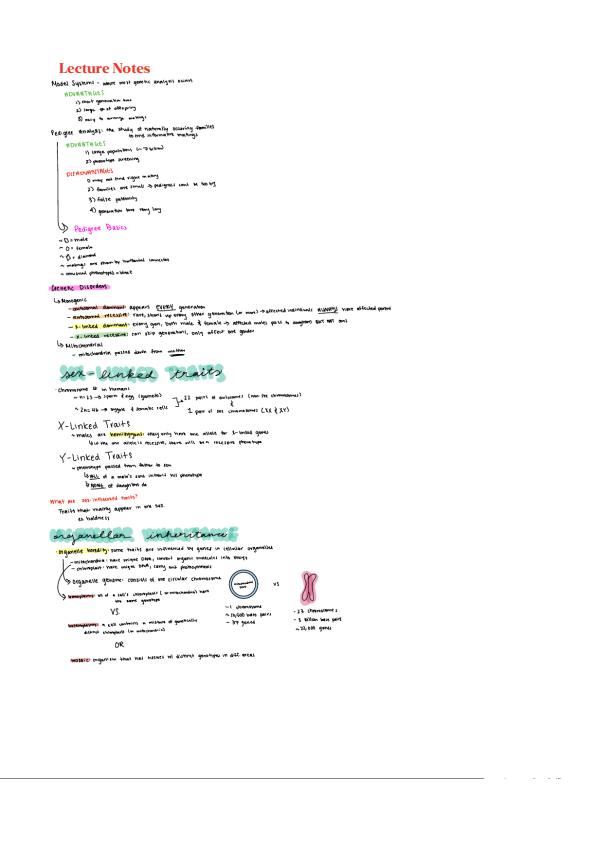 Lecture Notes
Model Systems - where most genetic analysis occurs
ADVANTAGES
1) short generation time
2) large # of offspring
3) easy to arrange matings
Pedigree Analysis: the study of naturally occuring families
to find informative matings
ADVANTAGES
1) large populations (~7 billion)
2) phenotype screening
DISADVANTAGES
1) may not find right mating
2) families are small → pedigrees must be too big
3) false paternity
4) generation time very long
Pedigree Basics
~ □ = male
~ O = female
~ = diamond
~ matings are shown by horizontal connector
~ unusual phenotypes = black
Genetic Disorders
↳ Monogenic
- autosomal dominant: appears EVERY generation
- autosomal recessive: rare, shows up every other generation (or more) → affected individuals have affected parent
- X-linked dominant: every gen, both male & female → affected males pass to daughters but not sons
- X-linked recessive: can skip generations, only affect one gender
↳ Mitochondrial
- mitochondria passed down from mother
sex-linked traits
Chromosome # in humans
~ n=23 → sperm & egg (gamete)
~ 2n=46 → zygote & somatic cells
22 pairs of autosomes (non sex chromosomes)
&
1 pair of sex chromosomes (XX & XY)
X-Linked Traits
~ males are hemizygous: they only have one allele for X-linked genes
↳ if the one allele is recessive, there will be a recessive phenotype
Y-Linked Traits
~ phenotype passed from father to son
↳ ALL of a male's sons inherit his phenotype
↳ NONE of daughters do
What are sex-influenced traits?
Traits that mainly appear in one sex.
ex baldness
organellar inheritance
Organelle heredity: some traits are influenced by genes in cellular organelles
- mitochondria: have unique DNA, convert organic molecules into energy
- chloroplast: have unique DNA, carry out photosynthesis
→ Organelle genome: consists of one circular chromosome
→ homoplasmy: all of a cell's chloroplast (or mitochondria) have
the same genotype
VS.
heteroplasmy: a cell contains a mixture of genetically
distinct chloroplast (or mitochondria)
OR
mosaic: organism that has tissues w/ distinct genotypes in diff areas
VS
~ 1 chromosome
~ 16,000 base pairs
~ 37 genes
- 23 chromosomes
- 3 billion base pairs
~ 22,000 genes